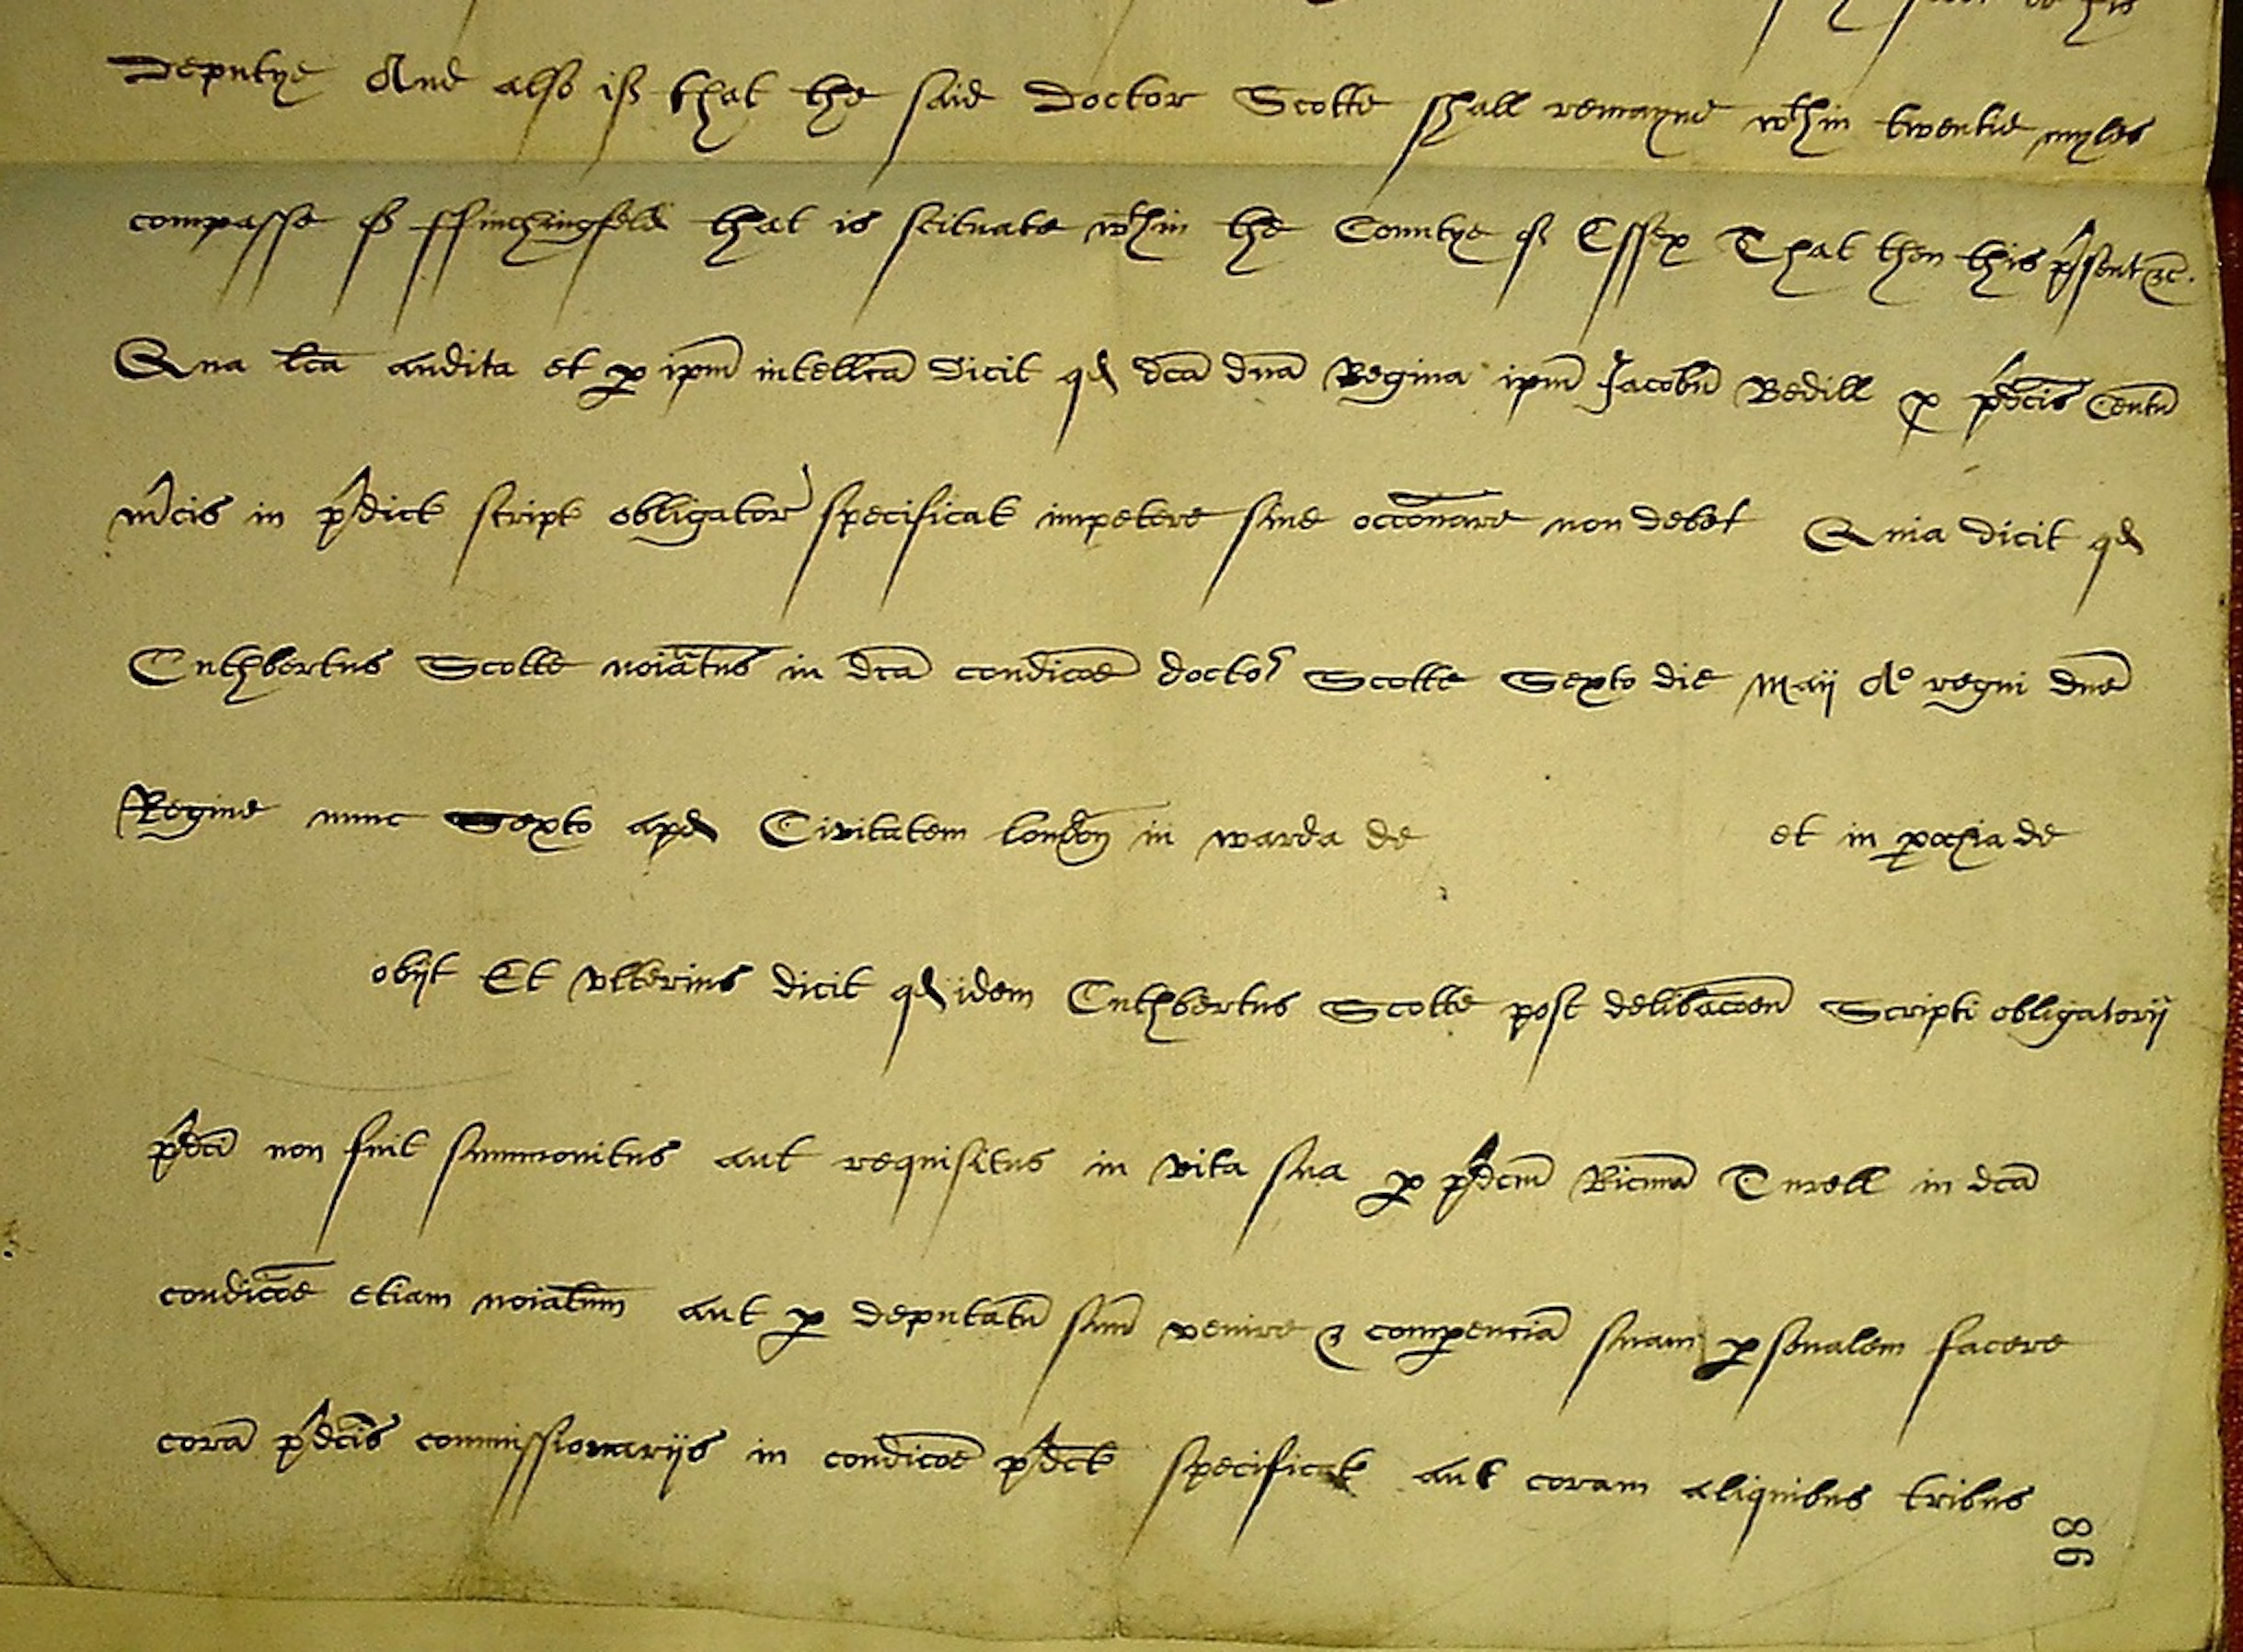 Deputye And also if that the said Doctor Scotte shall remayne wthin twentie myles
compasse of ffinchingfeld that is scituate wthin the Countye of Essex That then this p̃sent &c.
Qua lc̃a audita et p ip̃m intellc̃a dicit qd dc̃a dn̄a Regina ip̃m Jacobū Bedill p p̃dc̃is Centū
m̃cis in p̃dict script obligator specificat impetere sive occōnare non debet Quia dicit qd
Cuthbertus Scotte noīatus in dc̃a condicōe doctor Scotte Sexto die Maij Ao regni dn̄e
Regine nunc Sexto apd Civitatem london in warda de et in pochia de
obijt Et vlterius dicit qd idem Cuthbertus Scotte post delibacōem Scripti obligatorij
p̃dc̃i non fuit summonitus aut requisitus in vita sua p p̃dc̃m Ricm̄ Turell in dc̃a
condicōe etiam noīatum aut p deputatū suū venire & compenciā suam psonalem facere
corā p̃dc̃is commissionarijs in condicōe p̃dc̃t specificat aut coram aliquibus tribus
86